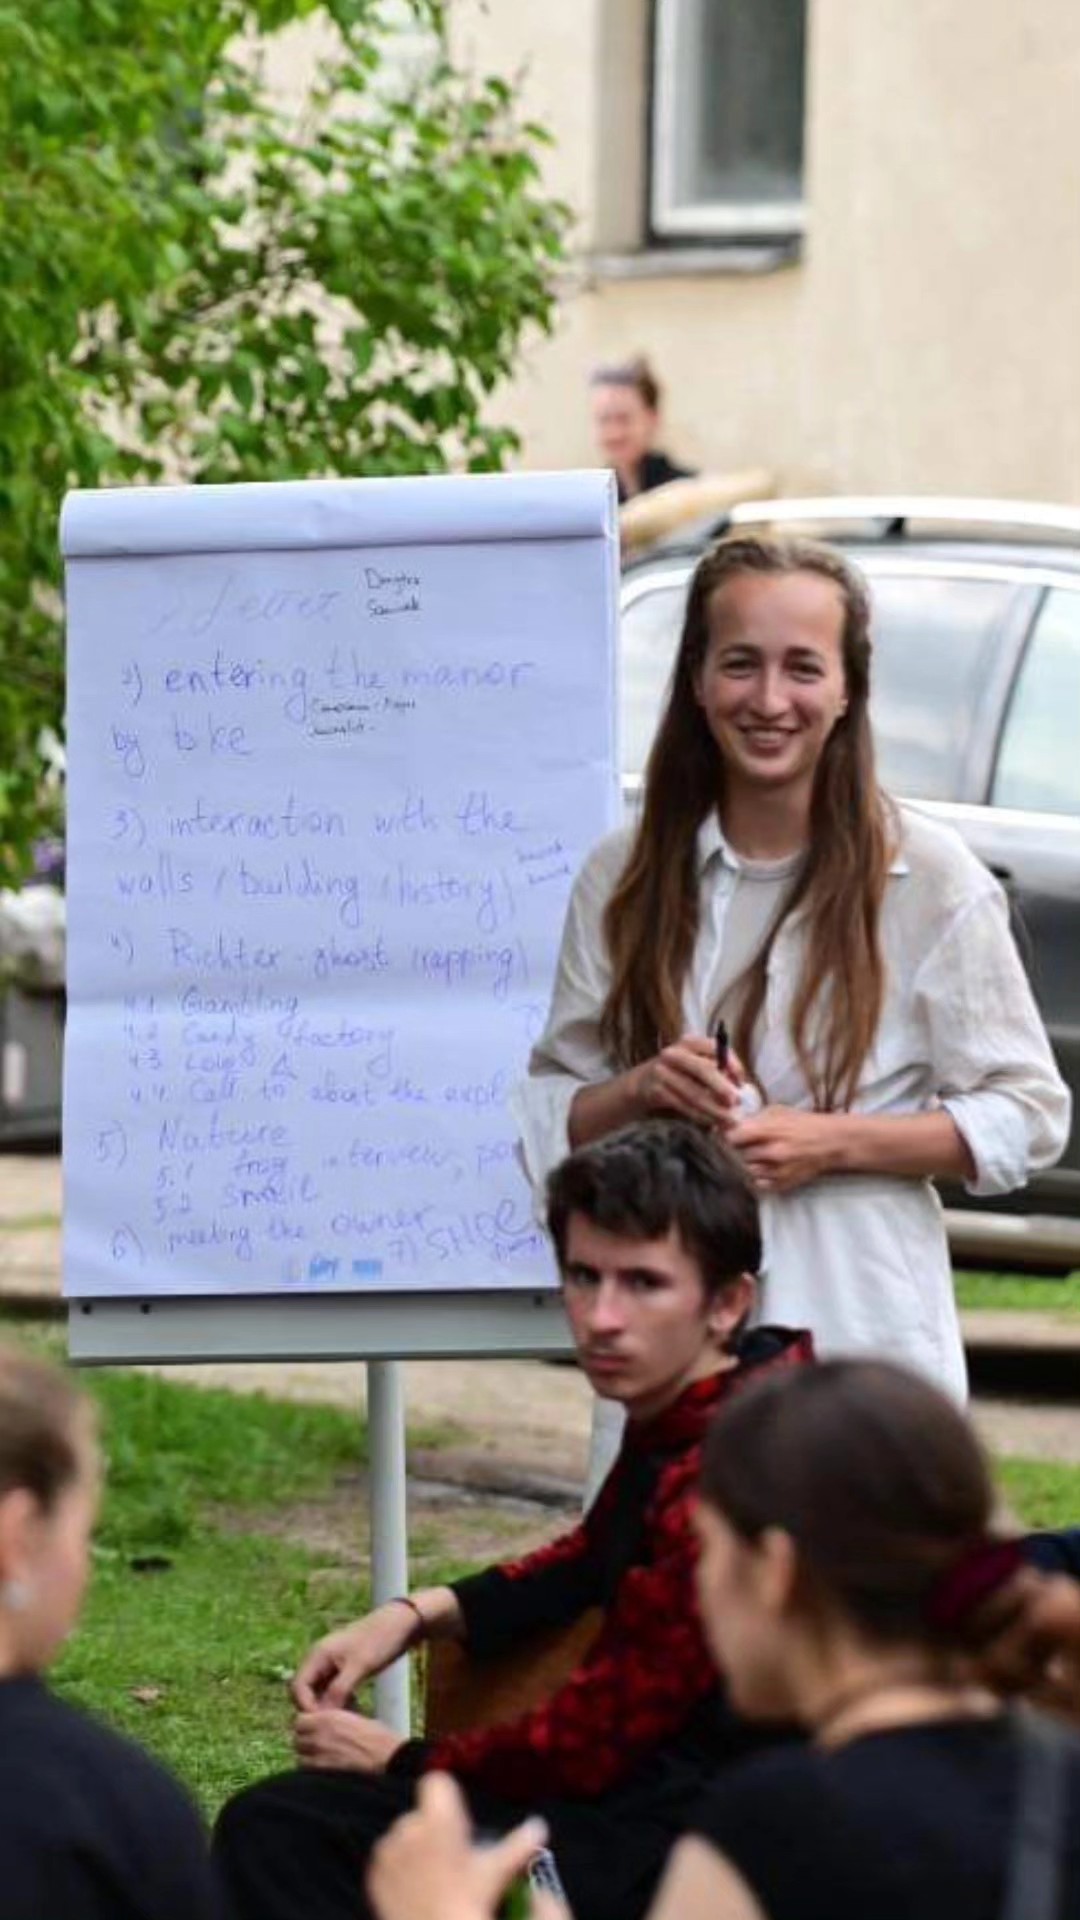 2) entering the manor
by bike
3) interaction with the
walls / building (history)
4) Richter - ghost (rapping)
4.1 Gambling
4.2 Candy factory
4.3 Love
4.4 Call to about the expl
5) Nature
5.1 frog interview, po
5.2 smell
6) meeting the owner
7) SHOE